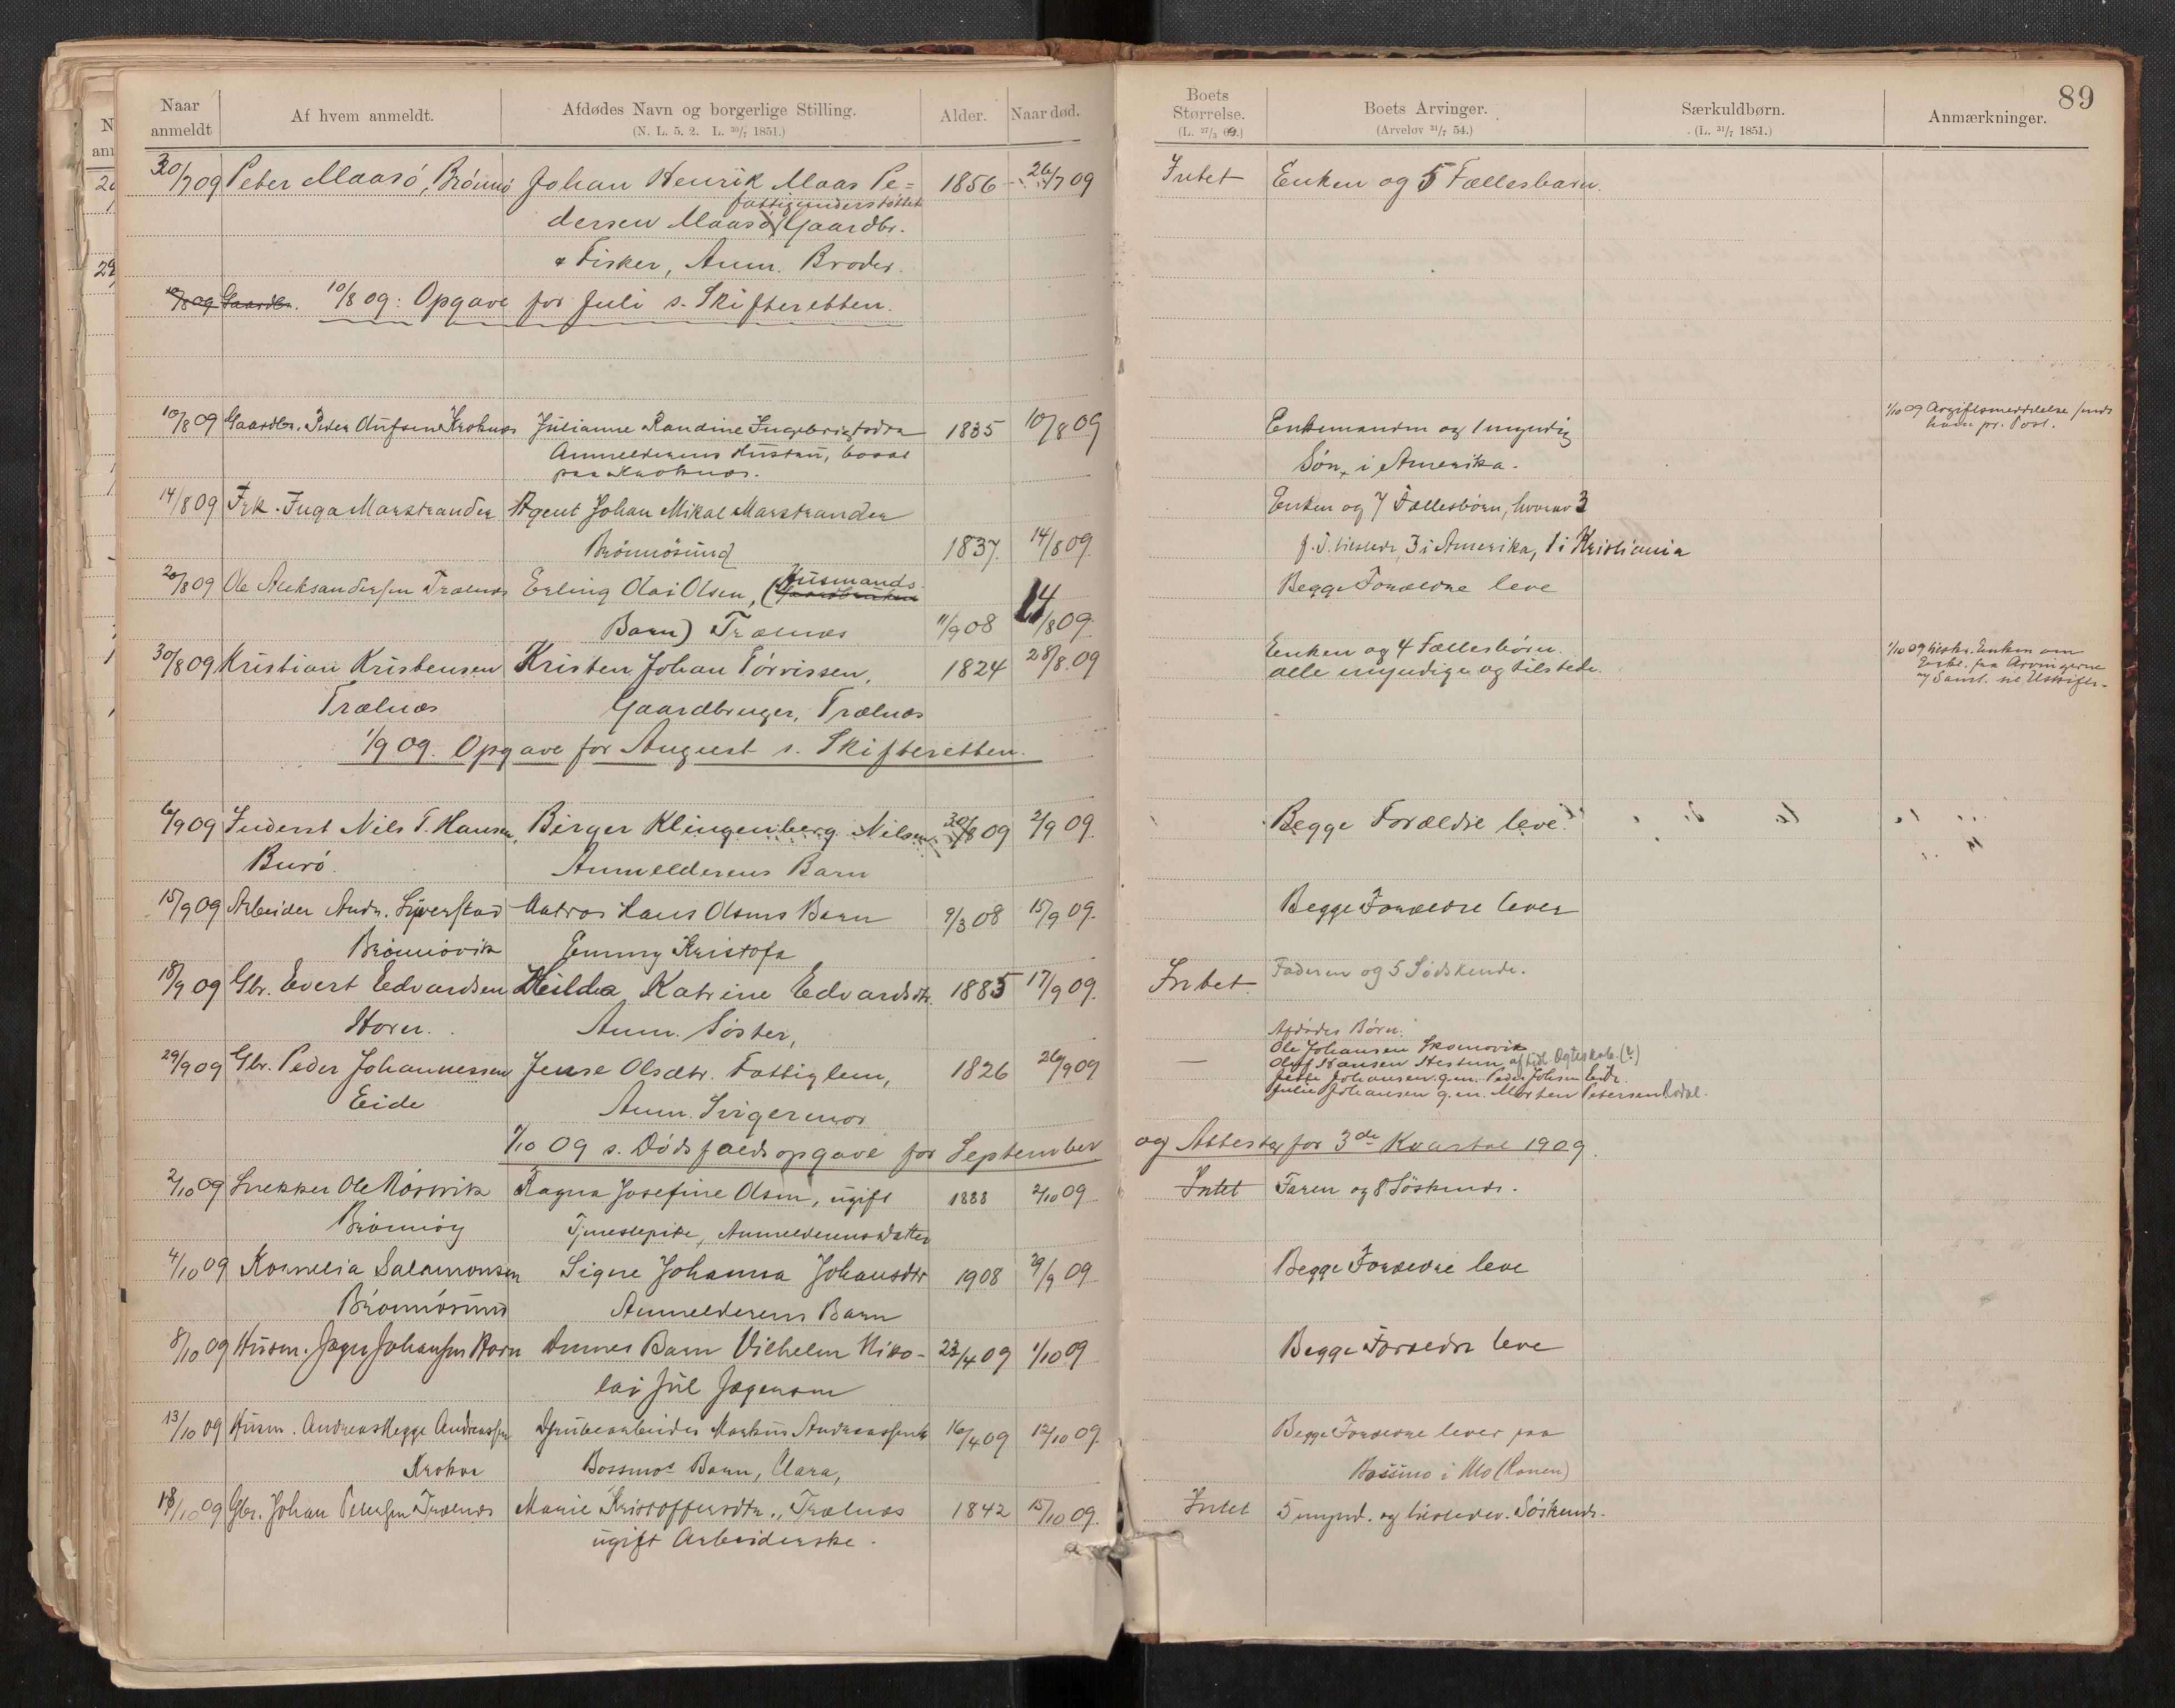 89
Naar anmeldt
Af hvem anmeldt.
Afdødes Navn og borgerlige Stilling.
(N. L. 5. 2. L. 30/7 1851.)
Alder.
Naar død.
Boets Størrelse.
(L. 27/3 69.)
Boets Arvinger.
(Arvelov 31/7 54.)
Særkuldbørn.
(L. 31/7 1851.)
Anmærkninger.
30/7 09 Peter Maasö, Brönnö Johan Henrik Maas Pe= 1856 26/7 09 Intet Enken og 5 Fællesbarn.
fattigunderstöttet
dersen Maasö, Gaardbr.
& Fisker, Anm. Broder.
10/8 09 Gaardbr. 10/8 09: Opgave for Juli s. Skifteretten.
10/8 09 Gaardbr. Peder Olufsen Kroknæs Julianne Randine Ingebrigtsdtr 1835 10/8 09 Enkemanden og 1 myndig
1/10 09 Avgiftsmeddelelse
pr. Post.
Anmelderens Hustru, bosat Søn, i Amerika.
paa Kroknæs.
14/8 09 Frk. Inga Marstrander Agent Johan Mikal Marstrander Enken og 7 Fællesbørn, hvorav 3
Brönnösund 1837. 14/8 09. f. T. tilstede, 3 i Amerika, 1 i Kristiania
20/8 09 Ole Aleksandersen Trælnæs Erling Olai Olsen, (Husmands Begge Forældre leve
Gaardbruker
Barn) Trælnæs 11/9 08 14/8 09.
30/8 09 Kristian Kristensen Kristen Johan Törrissen, 1824 28/8. 09 Enken og 4 Fællesbörn.
alle myndige og tilstede.
1/10 09 Enken om
Erkl. fra Arvingerne
og Saml.
Trælnæs Gaardbruger, Trælnæs
1/9 09. Opgave for August s. Skifteretten.
6/9 09 Inderst Nils T. Hansen, Birger Klingenberg Nilsen 30/8 09 2/9 09. Begge Forældre leve.
Burö. Anmelderens Barn
15/9 09 Arbeider Andr. Syverstad Matros Hans Olsens Barn 9/3 08 15/9 09. Begge Forældre lever
Brönnövik Emmy Kristofa
18/9 09 Gbr. Evert Edvardsen Hilda Katrine Edvardsdtr. 1885 17/9 09. Intet. Faderen og 5 Södskende.
Horn. Anm. Söster,
29/9 09 Gbr. Peder Johannessen Jense Olsdtr. Fattiglem, 1826 26/9 09 —
Afdödes Börn:
Ole Johansen Skomovik
Oluf Hansen Hestun af tidl. Ægteskab. (?)
Jette Johansen g. m. Peder Johsen Eide.
Julie Johansen g. m. Morten Petersen
Eide Anm. Svigermor
1/10 09 s. Dödsfaldsopgave for September og Attester for 3de Kvartal 1909.
2/10 09 Snekker Ole Mösvik Ragna Josefine Olsen, ugift 1888 2/10 09 Intet Faren og 8 Söskende.
Brönnöy Tjenestepike, Anmelderens Datter
4/10 09 Kornelia Salamonsen Signe Johanna Johansdtr 1908 29/9 09 Begge Forældre leve
Brönnösund Anmelderens Barn
8/10 09 Husm. Jæger Johansen Horn Annes Barn Vilhelm Niko- 23/4 09 1/10 09 Begge Forældre leve
lai Jul Jægersen
13/10 09 Husm. Andreas Hegge Andreassen Grubearbeider Markus Andreassens 16/4 09 12/10 09. Begge Forældre lever paa
Krokar Bossmos Barn, Clara, Bossmo i Mo (Ranen)
18/10 09 Gbr. Johan Petersen Trælnæs Marie Kristoffersdtr., Trælnæs 1842 15/10 09. Intet 5 mynd. og tilstedev. Söskende.
ugift Arbeiderske.